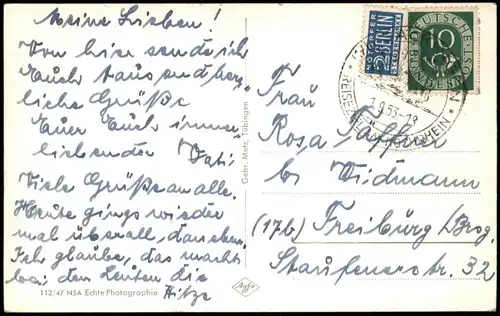 Meine Lieben!
Von hier sende ich
Euch tausend herz
liche Grüße
Euer Euch immer
liebender Vati
Viele Grüße an alle.
Heute gings wieder
mal überall daneben.
Ich glaube, das macht
bei den Leuten die
Hitze
112/47 NSA Echte Photographie
Agfa
Gebr. Metz, Tübingen
NOTOPFER
2 BERLIN
STEUERMARKE
DEUTSCHE BUNDESPOST
10
Frau
Rosa
bei Widmann
(17b) Freiburg Brsg.
Staufenerstr. 32